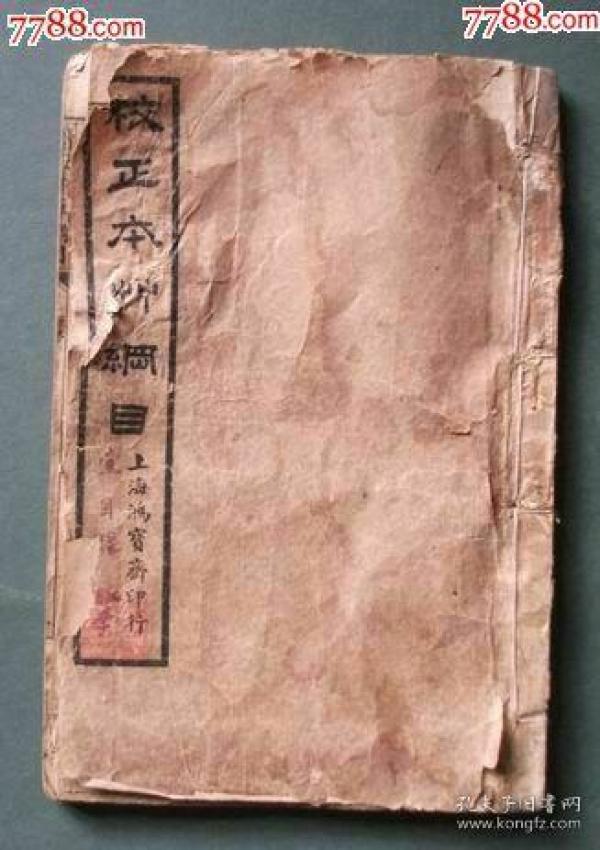 7788.com
7788.com
校正本艸綱目
上海鴻寶齋印行
孔夫子旧书网
www.kongfz.com